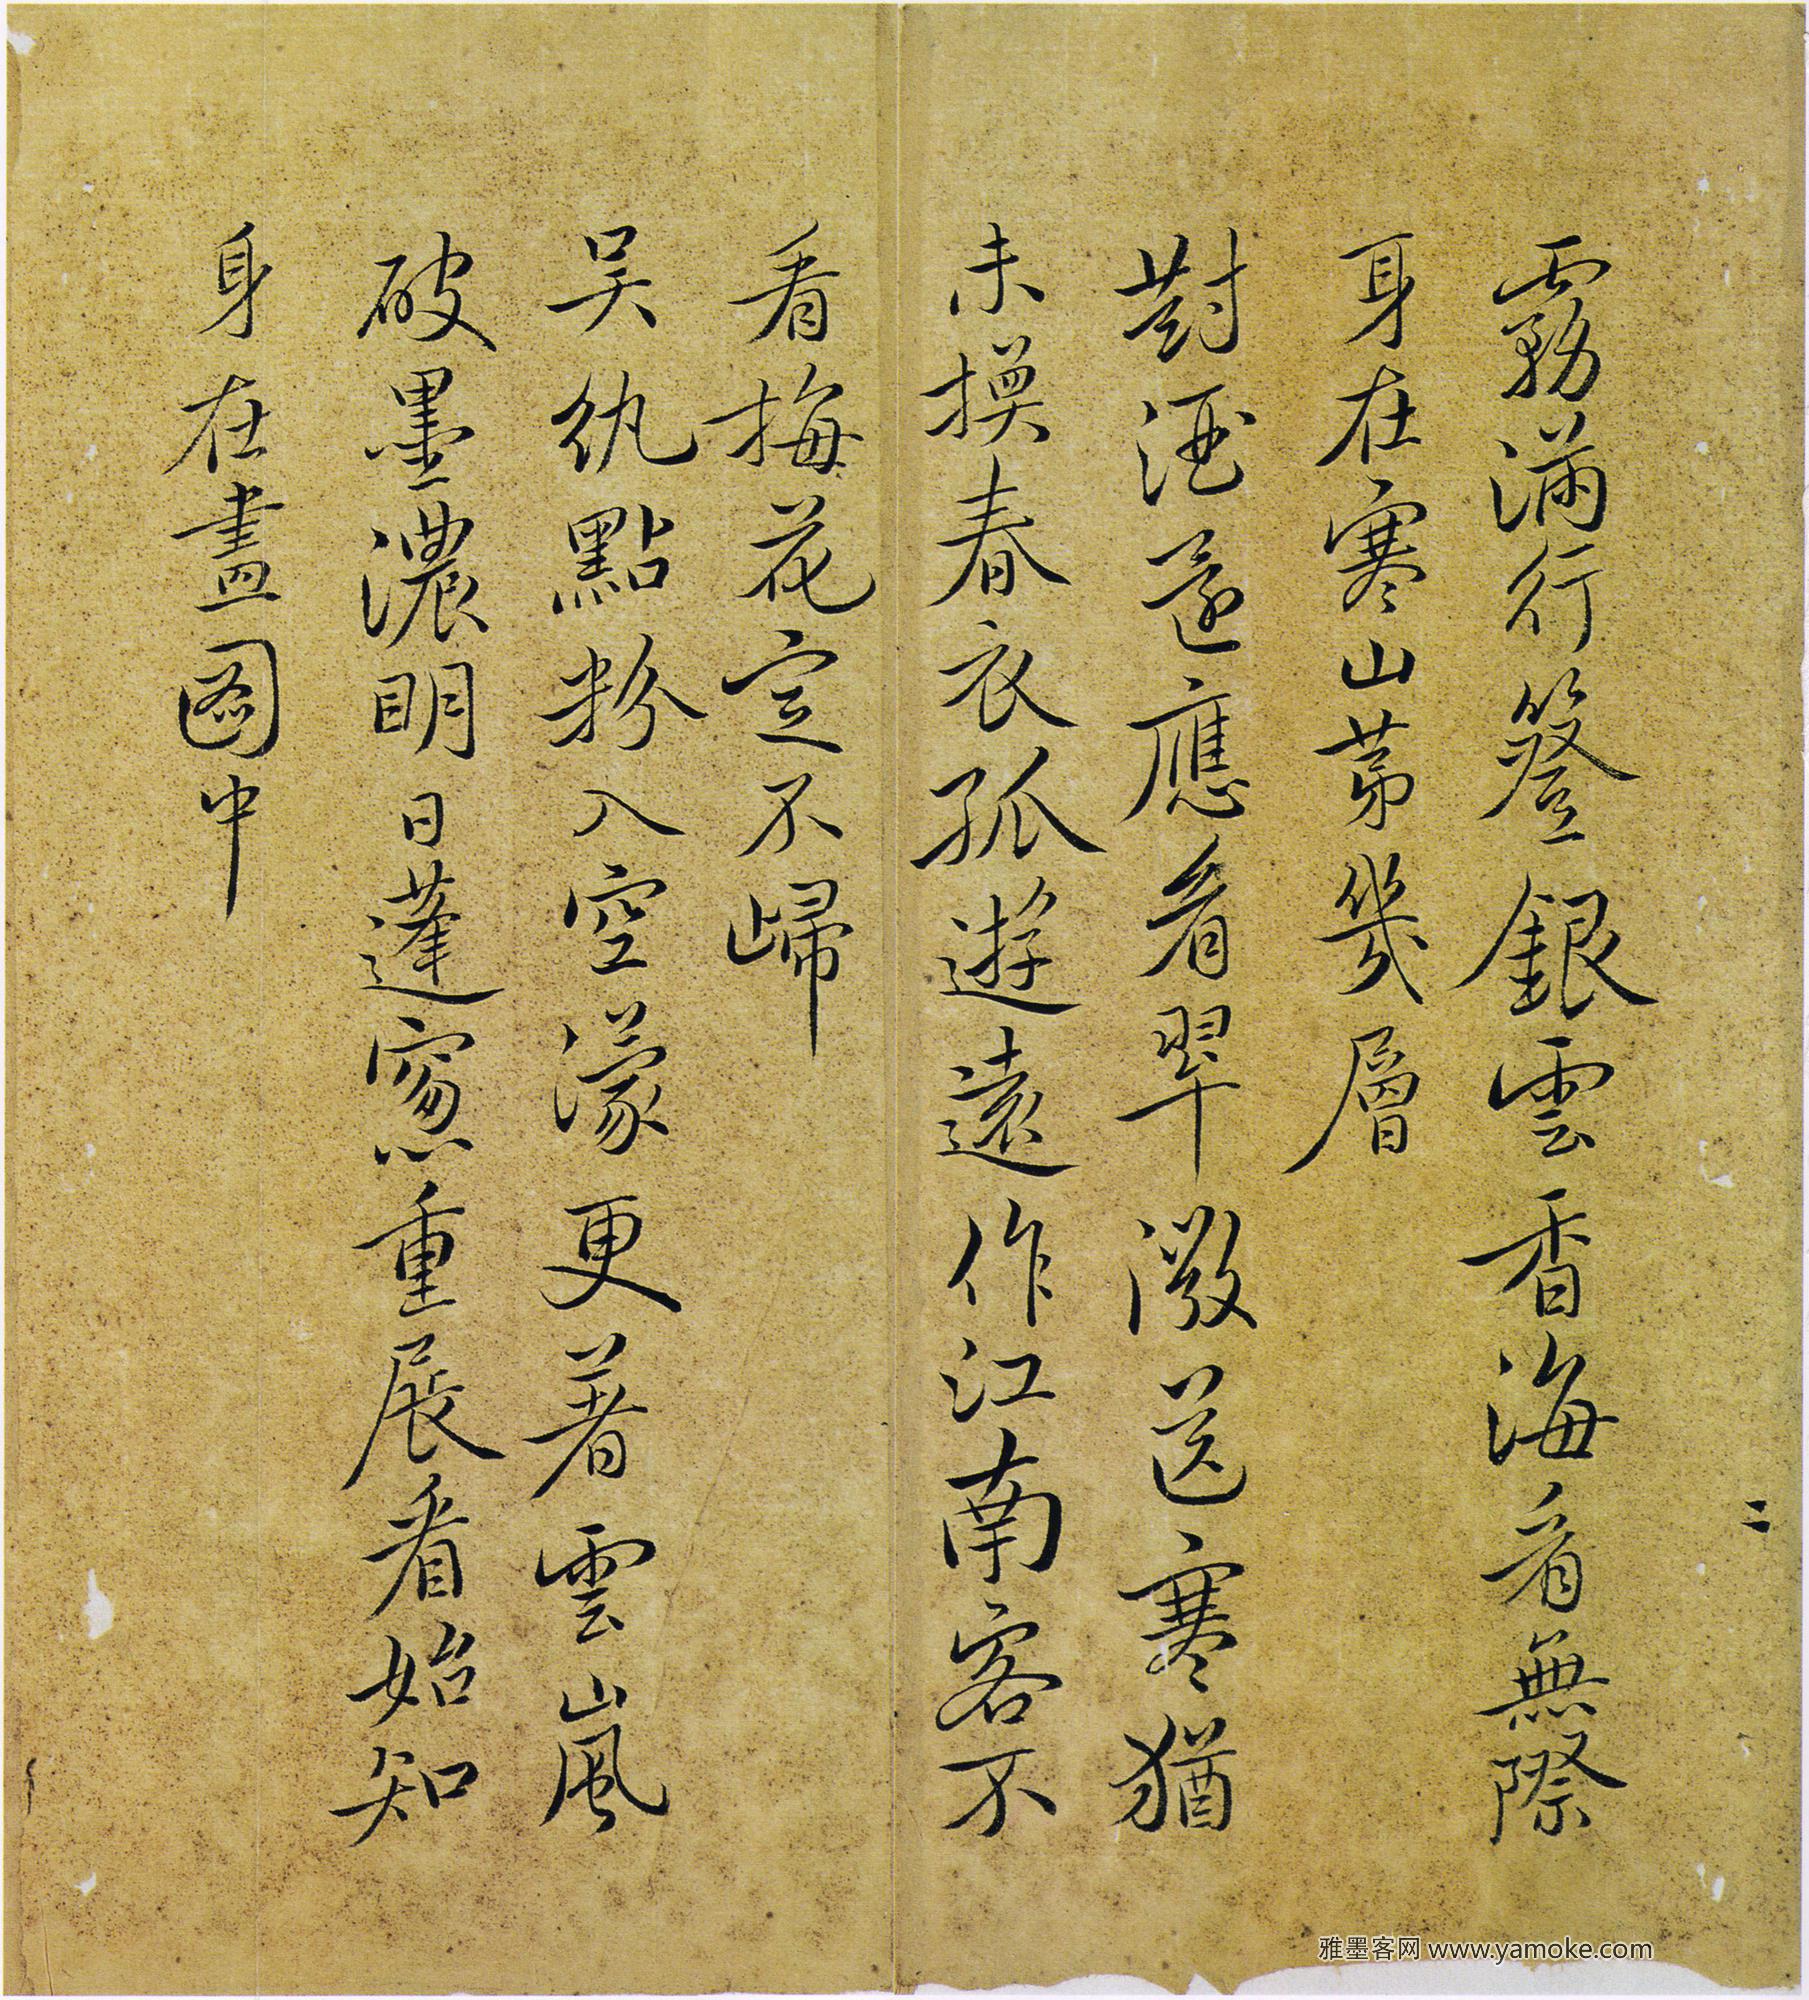 二
霧滿行簦銀雲香海看無際
身在寒山苐幾層
對酒還應看翠微送寒猶
未換春衣孤遊遠作江南客不
看梅花定不歸
吴紈點粉入空濛更著雲嵐
破墨濃明日蓬窻重展看始知
身在畫圖中
雅墨客网 www.yamoke.com